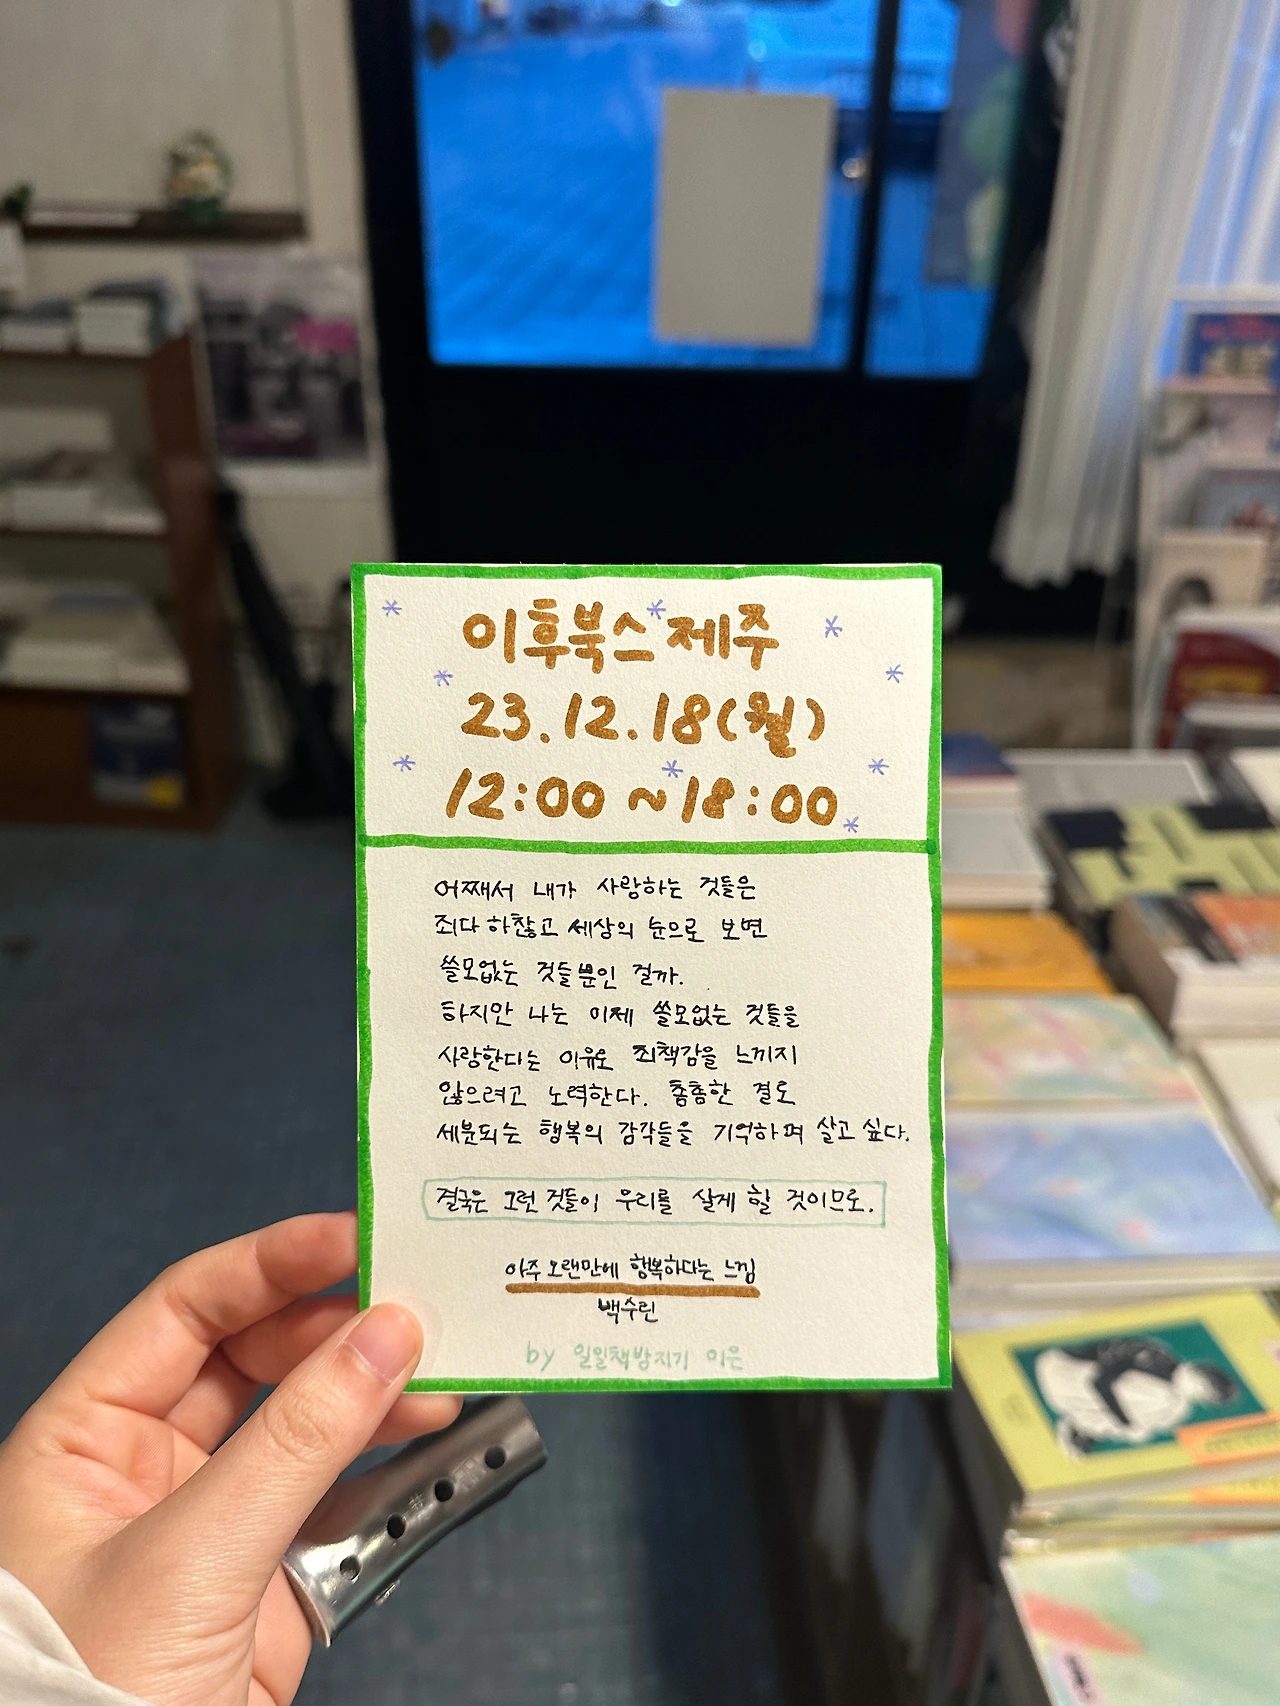 이후북스 제주
23.12.18(월)
12:00 ~ 18:00
어째서 내가 사랑하는 것들은
죄다 하찮고 세상의 눈으로 보면
쓸모없는 것들뿐인 걸까.
하지만 나는 이제 쓸모없는 것들을
사랑한다는 이유로 죄책감을 느끼지
않으려고 노력한다. 촘촘한 결로
세분되는 행복의 감각들을 기억하며 살고 싶다.
결국은 그런 것들이 우리를 살게 할 것이므로.
아주 오랜만에 행복하다는 느낌
백수린
by 일일책방지기 이은